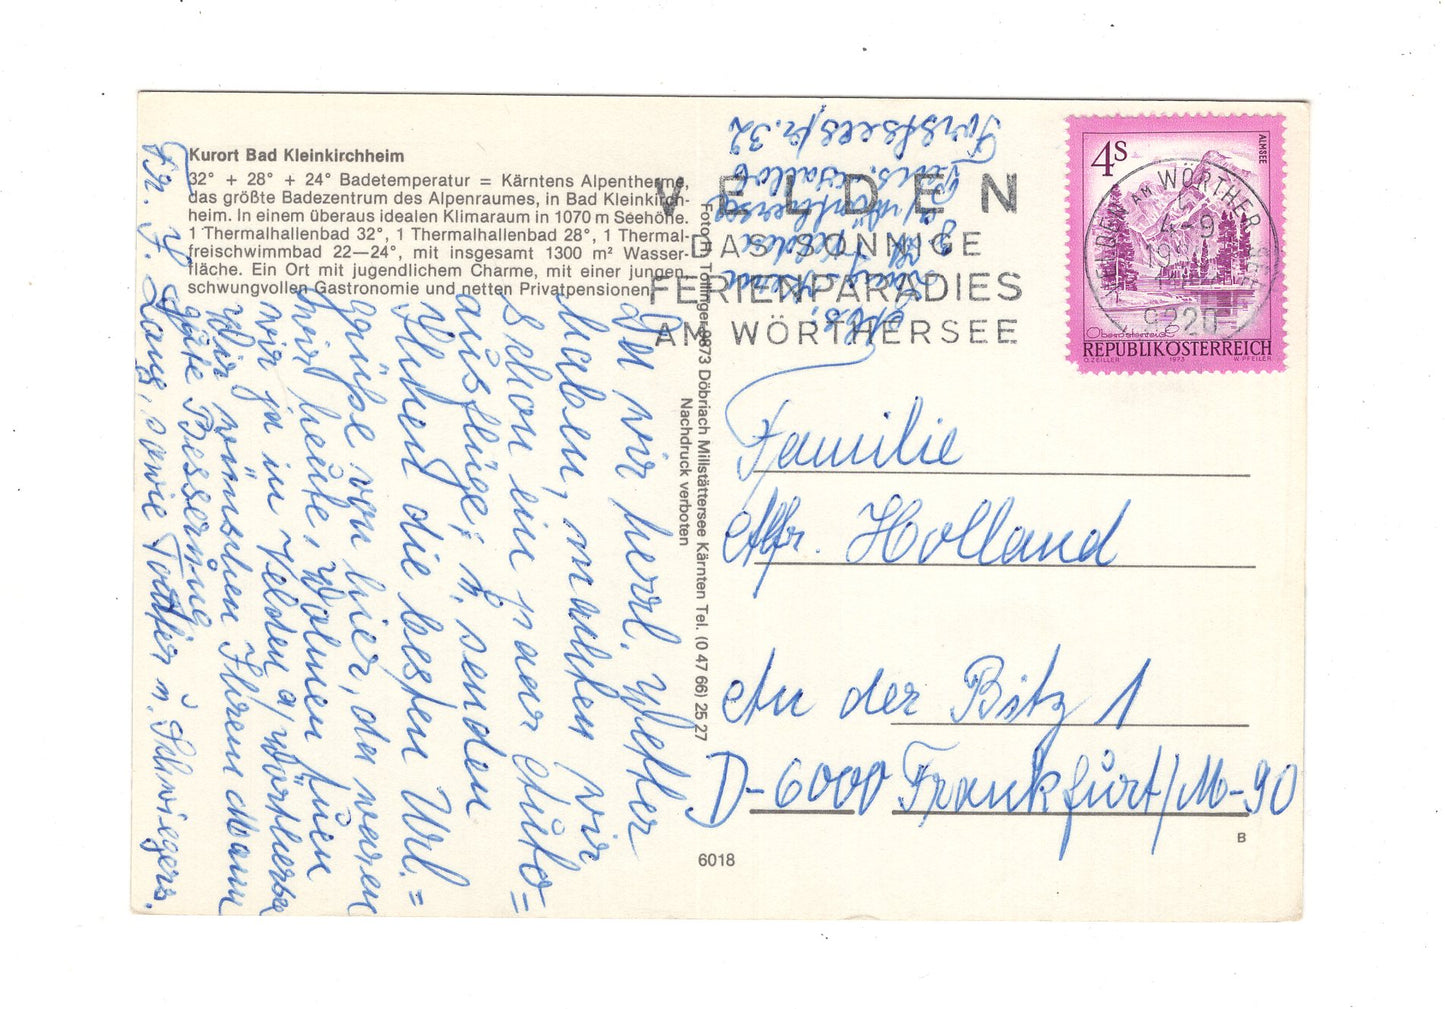 Kurort Bad Kleinkirchheim
32° + 28° + 24° Badetemperatur = Kärntens Alpentherme,
das größte Badezentrum des Alpenraumes, in Bad Kleinkirch-
heim. In einem überaus idealen Klimaraum in 1070 m Seehöhe.
1 Thermalhallenbad 32°, 1 Thermalhallenbad 28°, 1 Thermal-
freischwimmbad 22—24°, mit insgesamt 1300 m² Wasser-
fläche. Ein Ort mit jugendlichem Charme, mit einer jungen,
schwungvollen Gastronomie und netten Privatpensionen.
Da wir herrl. Wetter
haben, machten wir
schon ein paar Auto=
ausflüge, u. senden
Ihnen die besten Url.=
grüße von hier, da waren
wir heute, wohnen tuen
wir ja in Velden a/Wörthersee
Wir wünschen Ihren Mann
gute Besserung
Fr. J. Lang, sowie Tochter u. Schwiegers.
Foto H. Tollinger 9873 Döbriach Millstättersee Kärnten Tel. (0 47 66) 25 27
Nachdruck verboten
VELDEN
DAS SONNIGE
FERIENPARADIES
AM WÖRTHERSEE
VELDEN AM WÖRTHER SEE
4-9
9220
4S
ALMSEE
Oberösterreich
REPUBLIK ÖSTERREICH
O. ZEILLER 1973 W. PFEILER
Abs.
Velden
a/Wörthersee
Forstseestr. 32
Familie
Alfr. Holland
An der Bitz 1
D-6000 Frankfurt/M-90
6018
B